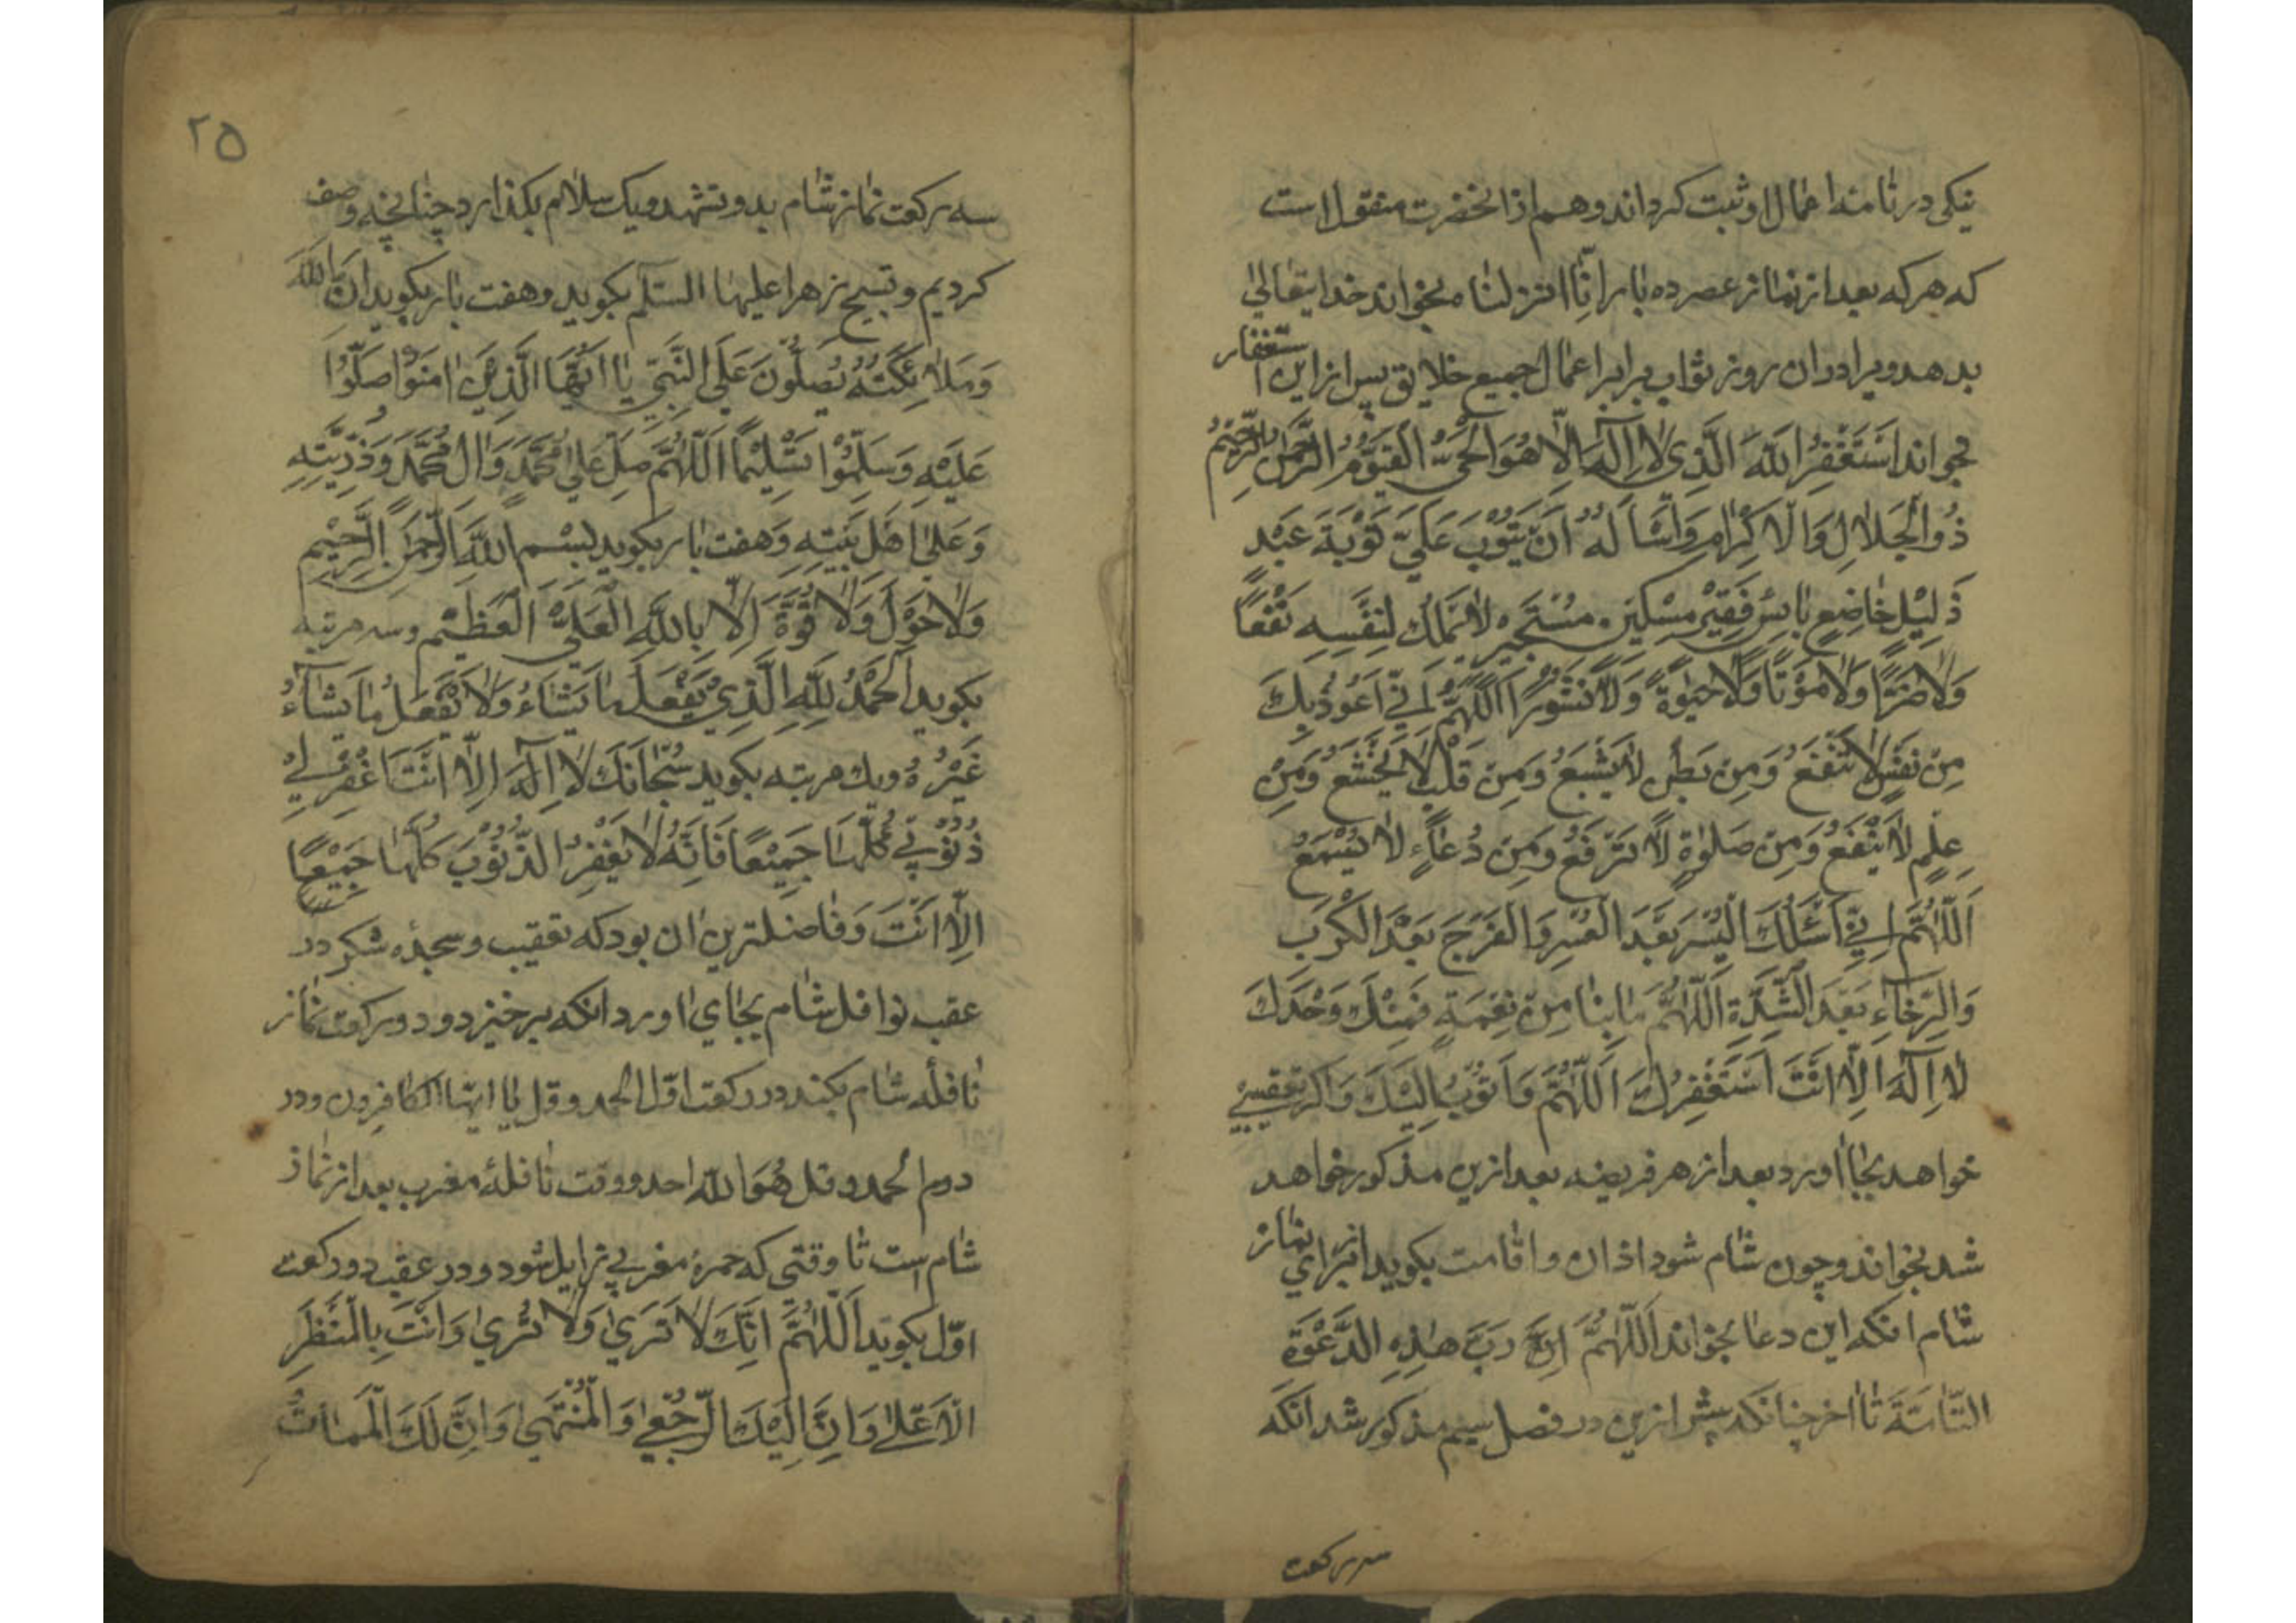 نیکی در نامهٔ اعمال او ثبت کرداند و هم از انحضرت منقول است
که هرکه بعد از نماز عصر ده بار انّا انزلناه بخواند خدایتعالی
بدهد ویرا در ان روز ثواب برابر اعمال جمیع خلایق پس از این استغفار
بخواند اَسْتَغْفِرُ اللهَ الَّذی لا اِلٰهَ اِلّا هُوَ الْحَیُّ الْقَیُّومُ الرَّحْمٰنُ الرَّحیْمُ
ذُو الْجَلالِ وَالاکْرامِ وَاَسْاَلُهُ اَنْ یَتُوْبَ عَلَیَّ تَوْبَةَ عَبْدٍ
ذَلِیْلٍ خاضِعٍ بائِسٍ فَقِیْرٍ مِسْکینٍ مُسْتَجیرٍ لا یَمْلِکُ لِنَفْسِهِ نَفْعًا
وَلا ضَرًّا وَلا مَوْتًا وَلا حَیٰوةً وَلا نُشُوْرًا اَللّٰهُمَّ اِنّی اَعُوْذُ بِکَ
مِنْ نَفْسٍ لا تَقْنَعُ وَمِنْ بَطْنٍ لا یَشْبَعُ وَمِنْ قَلْبٍ لا یَخْشَعُ وَمِنْ
عِلْمٍ لا یَنْفَعُ وَمِنْ صَلٰوةٍ لا تُرْفَعُ وَمِنْ دُعاءٍ لا یُسْمَعُ
اَللّٰهُمَّ اِنّی اَسْئَلُکَ الْیُسْرَ بَعْدَ الْعُسْرِ وَالْفَرَجَ بَعْدَ الْکَرْبِ
وَالرَّخاءِ بَعْدَ الشِّدَّةِ اَللّٰهُمَّ ما بِنا مِنْ نِعْمَةٍ فَمِنْکَ وَحْدَکَ
لا اِلٰهَ اِلّا اَنْتَ اَسْتَغْفِرُکَ اَللّٰهُمَّ وَاَتُوْبُ اِلَیْکَ وَاکر تعقیبی
خواهد بجا اورد بعد از هر فریضه بعد ازین مذکور خواهد
شد بخواند و چون شام شود اذان و اقامت بکوید از برای نماز
شام انکه این دعا بخواند اَللّٰهُمَّ رَبَّ هٰذِهِ الدَّعْوَةِ
التّامَّةَ تا اخر چنانکه پیش ازین در فصل سیم مذکور شد انکه
سه رکعت
٢٥
سه رکعت نماز شام بدو تشهد و یک سلام بکذارد چنانچه وصف
کردیم و تسبیح زهرا علیها السلم بکوید و هفت بار بکوید اِنَّ اللهَ
وَمَلائِکَتَهُ یُصَلُّونَ عَلَی النَّبِیِّ یا اَیُّهَا الَّذِیْنَ اٰمَنُوْا صَلُّوْا
عَلَیْهِ وَسَلِّمُوْا تَسْلِیْمًا اَللّٰهُمَّ صَلِّ عَلی مُحَمَّدٍ وَاٰلِ مُحَمَّدٍ وَذُرِّیَّتِهِ
وَعَلیٰ اَهْلِ بَیْتِهِ وَهفت بار بکوید بِسْمِ اللهِ الرَّحْمٰنِ الرَّحِیْمِ
وَلا حَوْلَ وَلا قُوَّةَ اِلّا بِاللهِ الْعَلِیِّ الْعَظِیْمِ و سه مرتبه
بکوید اَلْحَمْدُ لِلّٰهِ الَّذِیْ یَفْعَلُ ما یَشاءُ وَلا یَفْعَلُ ما یَشاءُ
غَیْرُهُ و یک مرتبه بکوید سُبْحانَکَ لا اِلٰهَ اِلّا اَنْتَ اغْفِرْ لِی
ذُنُوْبِی کُلَّها جَمِیْعًا فَاِنَّهُ لا یَغْفِرُ الذُّنُوْبَ کُلَّها جَمِیْعًا
اِلّا اَنْتَ وَفاضلترین ان بود که تعقیب و سجدهٔ شکر در
عقب نوافل شام بجای اورد انکه برخیزد و دو رکعت نماز
نافلهٔ شام بکند در رکعت اوّل الحمد و قل یا ایها الکافرون و در
دوم الحمد و قل هُوَ الله احد و وقت نافلهٔ مغرب بعد از نماز
شام است تا وقتی که حمرهٔ مغربی زایل شود و در عقب دو رکعت
اوّل بکوید اَللّٰهُمَّ اِنَّکَ لا تَریٰ وَلا تُریٰ وَاَنْتَ بِالْمَنْظَرِ
الْاَعْلیٰ وَاِنَّ اِلَیْکَ الرُّجْعیٰ وَالْمُنْتَهیٰ وَاِنَّ لَکَ الْمَماتُ